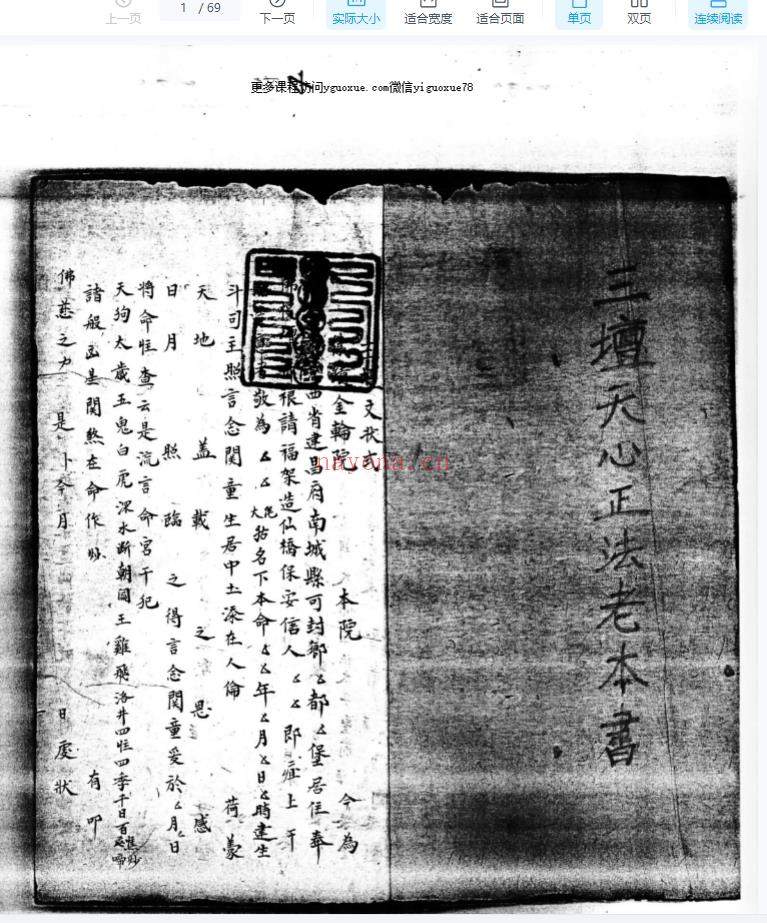 上一页
1 / 69
下一页
实际大小
适合宽度
适合页面
单页
双页
连续阅读
更多课程访问yguoxue.com微信yiguoxue78
三壇天心正法老本書
文狀式
金輪院 本院 今為
西省建昌府南城縣可封鄉厶都厶堡居住奉
請福架造仙橋保安信人厶厶即 上干
敬為厶厶 名下本命厶厶年厶月厶日厶時建生
斗司主照言念関童生居中土添在人倫 荷蒙
天地蓋載之恩 感
日月照臨之得言念関童爰於厶月日
將命恠查云是流言命宮干犯
天狗太歲五鬼白虎深水断朝閻王雞飛洛井四恠四季千日百
諸般凶星関煞在命作炒 有叩
佛慈之力是卜今月 日處狀
nayona.cn